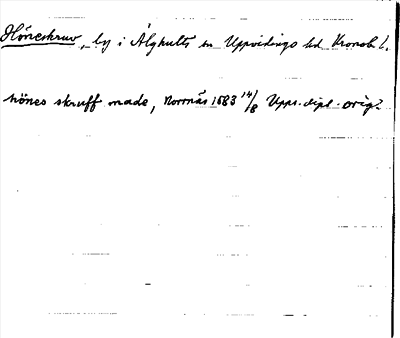 Höneskruv, by i Älghults sn Uppvidinge hd Kronob. l.
hönes skruff made, Norrnäs 1583 14/8 Upps. dipl. orig.